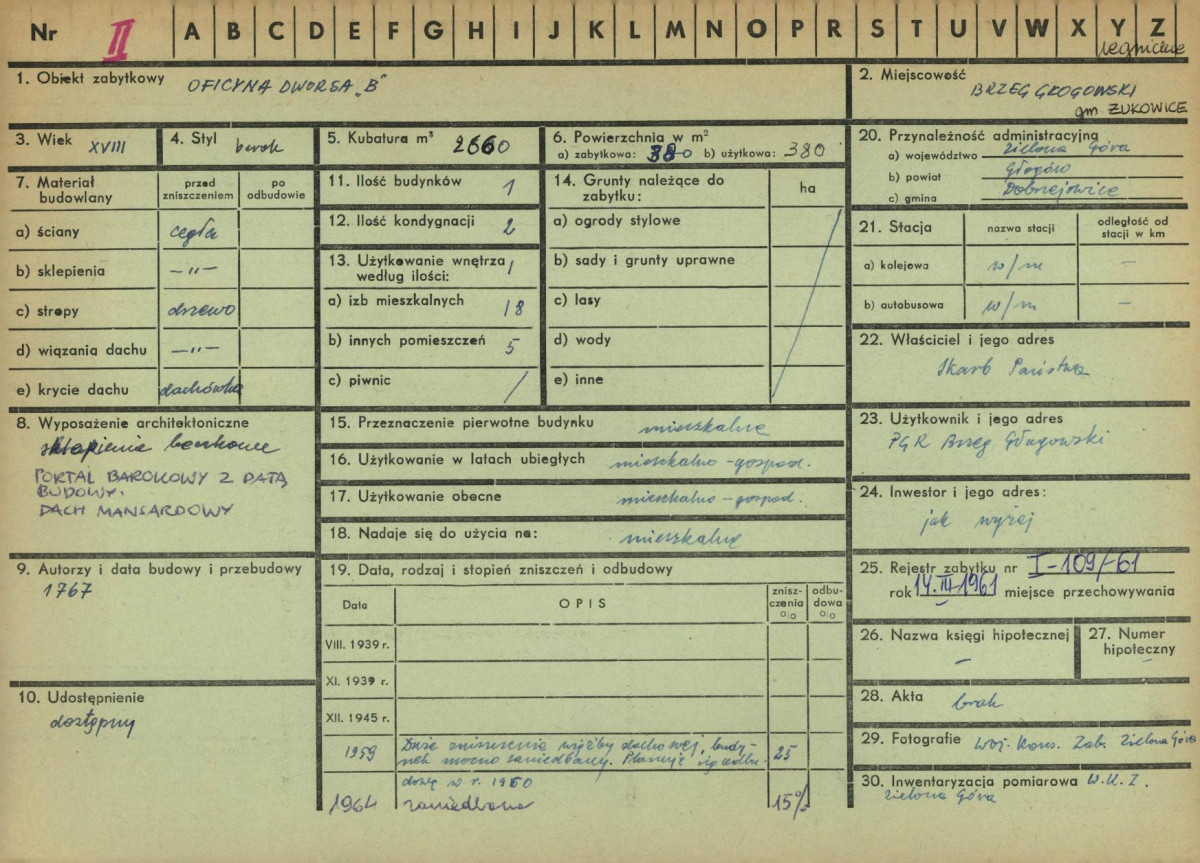 Nr II A B C D E F G H I J K L M N O P R S T U V W X Y Z
legnickie
1. Obiekt zabytkowy OFICYNA DWORSA „B"
2. Miejscowość BRZEG GŁOGOWSKI
gm ŻUKOWICE
3. Wiek XVIII
4. Styl barok
5. Kubatura m³ 2660
6. Powierzchnia w m²
a) zabytkowa: 380 b) użytkowa: 380
20. Przynależność administracyjna
a) województwo Zielona Góra
b) powiat Głogów
c) gmina Dobrzejowice
7. Materiał budowlany
przed zniszczeniem
po odbudowie
a) ściany cegła
b) sklepienia —„—
c) stropy drzewo
d) wiązania dachu —„—
e) krycie dachu dachówka
11. Ilość budynków 1
12. Ilość kondygnacji 2
13. Użytkowanie wnętrza według ilości: /
a) izb mieszkalnych 18
b) innych pomieszczeń 5
c) piwnic /
14. Grunty należące do zabytku:
ha
a) ogrody stylowe
b) sady i grunty uprawne
c) lasy
d) wody
e) inne
21. Stacja
nazwa stacji
odległość od stacji w km
a) kolejowa w/m —
b) autobusowa w/m —
22. Właściciel i jego adres
Skarb Państwa
8. Wyposażenie architektoniczne
sklepienia beczkowe
PORTAL BAROKOWY Z DATĄ
BUDOWY.
DACH MANSARDOWY
15. Przeznaczenie pierwotne budynku mieszkalne
16. Użytkowanie w latach ubiegłych mieszkalno-gospod.
17. Użytkowanie obecne mieszkalno-gospod.
18. Nadaje się do użycia na: mieszkalne
23. Użytkownik i jego adres
PGR Brzeg Głogowski
24. Inwestor i jego adres:
jak wyżej
9. Autorzy i data budowy i przebudowy
1767
10. Udostępnienie
dostępny
19. Data, rodzaj i stopień zniszczeń i odbudowy
Data
OPIS
zniszczenia %
odbudowa %
VIII. 1939 r.
XI. 1939 r.
XII. 1945 r.
1959 Duże zniszczenia więźby dachowej, budy-
nek mocno zaniedbany. Planuje się odbu- 25
dowę w r. 1960
1964 zaniedbana 15%
25. Rejestr zabytku nr I-109/61
rok 14.III.1961 miejsce przechowywania
26. Nazwa księgi hipotecznej
—
27. Numer hipoteczny
—
28. Akta brak
29. Fotografie Woj. Kons. Zab. Zielona Góra
30. Inwentaryzacja pomiarowa W.K.Z.
Zielona Góra